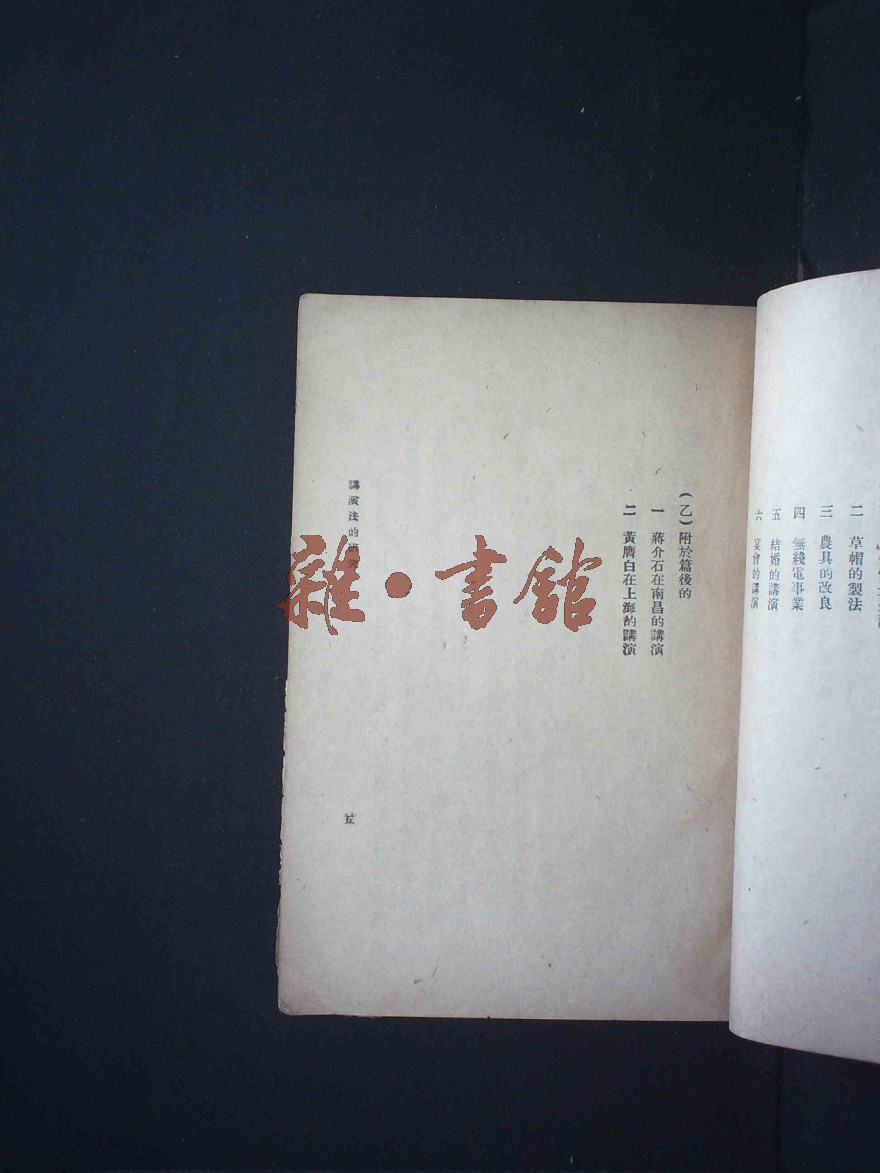 二 草帽的製法
三 農具的改良
四 無綫電事業
五 結婚的講演
六 宴會的講演
(乙)附於篇後的
一 蔣介石在南昌的講演
二 黃膺白在上海的講演
講演法的研
五
雜·書館